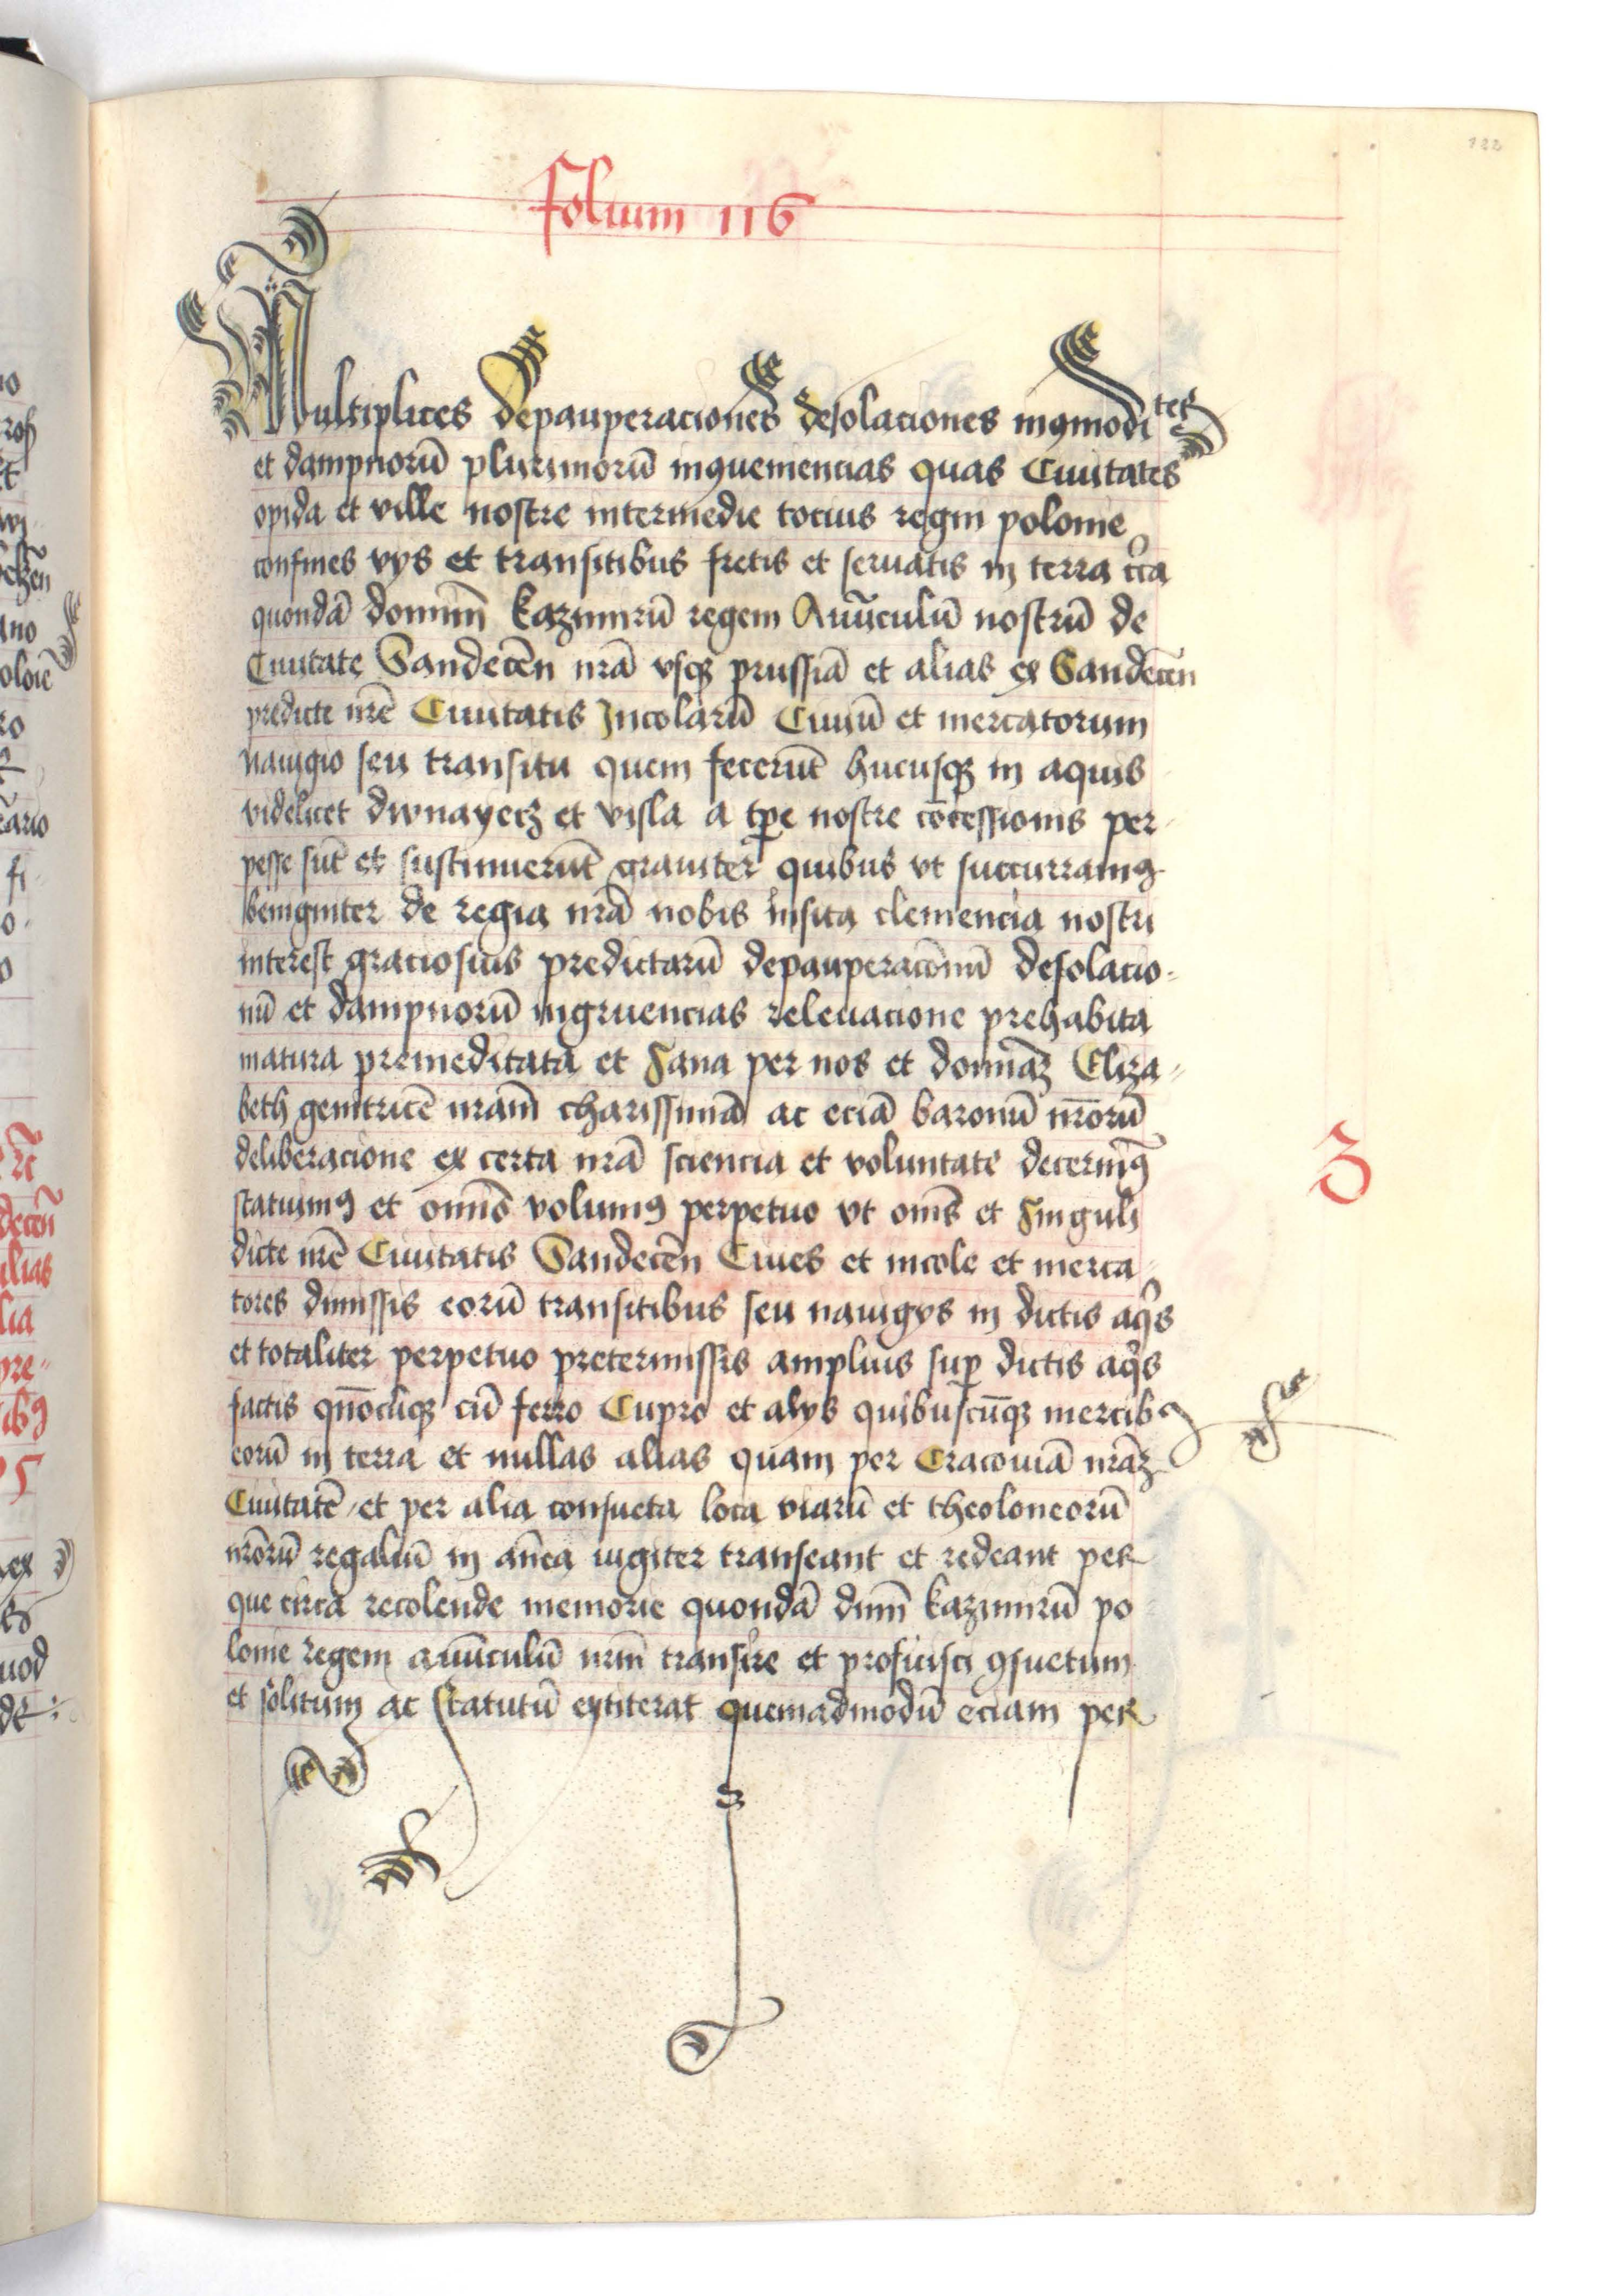 122
folium 116
Multiplices depauperaciones desolaciones inꝯmodi
tes
et dampnorū plurimorū inꝯueniencias quas Ciuitates
opida et ville nostre intermedie tocius regni polonie
confines vys et transitibus fretis et seruatis in terra
quondā dominū kazimirū regem Auūculū nostrū de
Ciuitate Sandecēn nrā vsqꝫ prussiā et alias ex Sandecēn
predicte nrē Ciuitatis Incolarū Ciuiū et mercatorum
nauigio seu transitu quem fecerūt hucusqꝫ in aquis
videlicet dwnayecz et visla a tꝑe nostre cōcessionis per-
pesse sūt et sustinuerūt grauiter quibus vt succurramꝯ
benigniter de regia nrā nobis insita clemencia nostri
interest graciosius predictarū depauperacōnū desolacio-
nū et dampnorū ingruencias releuacione prehabita
matura premeditata et sana per nos et domināꝫ Eliza-
beth genitricē nram̄ charissimā ac eciā baronū nrōrū
deliberacione ex certa nrā sciencia et voluntate decernimꝯ
statuimꝯ et omīs volumꝯ perpetuo vt omīs et singuli
dicte nrē Ciuitatis Sandecēn Ciues et incole et merca-
tores dimissis eorū transitibus seu nauigys in dictis aqis
et totaliter perpetuo pretermissis amplius suꝑ dictis aqis
factis qn̄ocūqꝫ cū ferro Cupro et alys quibuscūqꝫ mercibꝯ
eorū in terra et nullas alias quam per Cracouiā nrāꝫ
Ciuitatē et per alia consueta loca viarū et theoloneorū
nrōrū regaliū in an̄ea iugiter transeant et redeant per
que circa recolende memorie quondā dnm̄ kazimirū po
lonie regem auūculū nrm̄ transire et proficisci ꝯsuetum
et solitum ac statutū extiterat quemadmodū eciam per
3